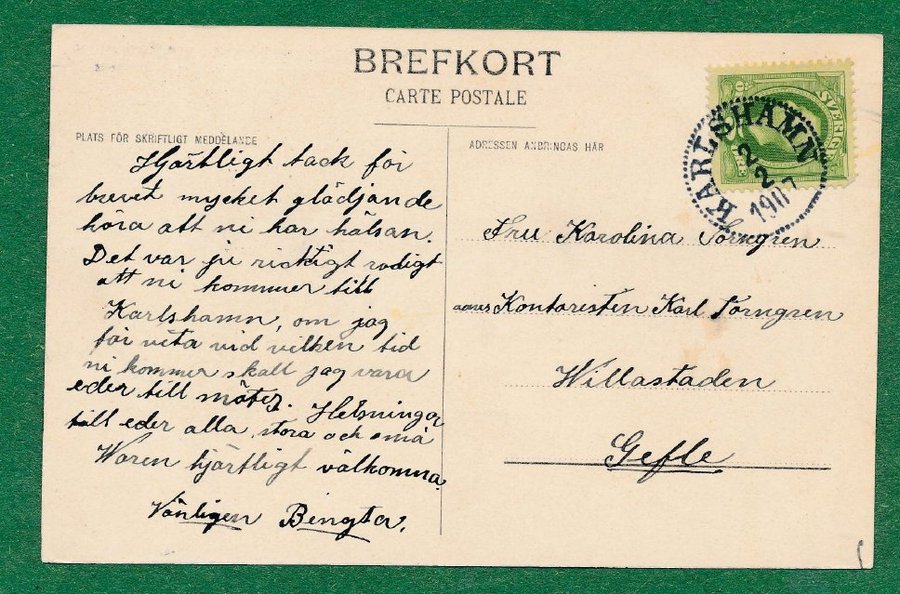 BREFKORT
CARTE POSTALE
PLATS FÖR SKRIFTLIGT MEDDELANDE
Hjärtligt tack för
brevet mycket glädjande
höra att ni har hälsan.
Det var ju ricktigt rodigt
att ni kommer till
Karlshamn, om jag
för veta vid vilken tid
ni kommer skall jag vara
eder till mötes. Helsningar
till eder alla, stora och små
Waren hjärtligt välkomna
Vänligen Bengta.
ADRESSEN ANBRINGAS HÄR
KARLSHAMN
2
2
1907
Fru Karolina Törngren
Kontoristen Karl Törngren
Willastaden
Gefle